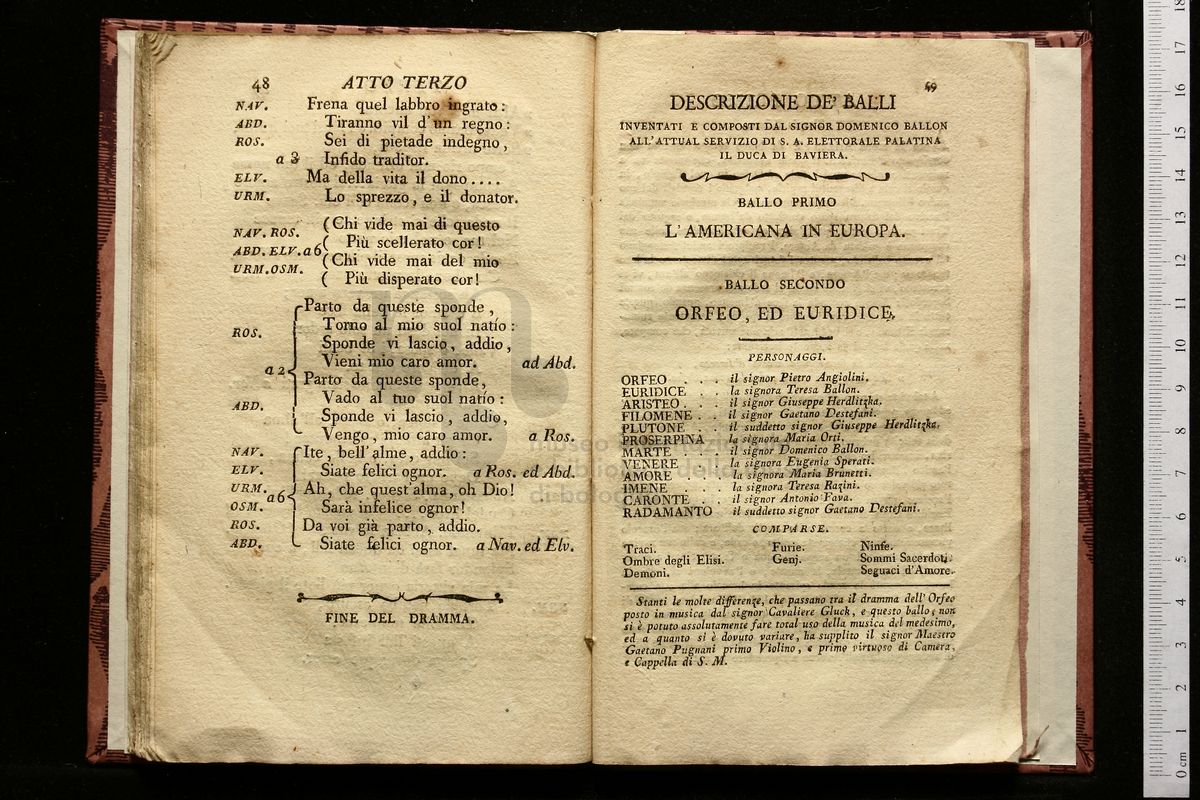 48 ATTO TERZO
NAV. Frena quel labbro ingrato:
ABD. Tiranno vil d'un regno:
ROS. Sei di pietade indegno,
a 3 Infido traditor.
ELV. Ma della vita il dono....
URM. Lo sprezzo, e il donator.
NAV. ROS. (Chi vide mai di questo
( Più scellerato cor!
ABD. ELV. a 6 (Chi vide mai del mio
URM. OSM. ( Più disperato cor!
Parto da queste sponde,
ROS. Torno al mio suol natío:
Sponde vi lascio, addio,
Vieni mio caro amor. ad Abd.
a 2 Parto da queste sponde,
Vado al tuo suol natío:
ABD. Sponde vi lascio, addio,
Vengo, mio caro amor. a Ros.
NAV. Ite, bell'alme, addio:
ELV. Siate felici ognor. a Ros. ed Abd.
URM. a 6 Ah, che quest'alma, oh Dio!
OSM. Sarà infelice ognor!
ROS. Da voi già parto, addio.
ABD. Siate felici ognor. a Nav. ed Elv.
FINE DEL DRAMMA.
49
DESCRIZIONE DE' BALLI
INVENTATI E COMPOSTI DAL SIGNOR DOMENICO BALLON
ALL'ATTUAL SERVIZIO DI S. A. ELETTORALE PALATINA
IL DUCA DI BAVIERA.
BALLO PRIMO
L'AMERICANA IN EUROPA.
BALLO SECONDO
ORFEO, ED EURIDICE,
PERSONAGGI.
ORFEO . . . il signor Pietro Angiolini.
EURIDICE . . la signora Teresa Ballon.
ARISTEO . . . il signor Giuseppe Herdlitzka.
FILOMENE . . il signor Gaetano Destefani.
PLUTONE . . il suddetto signor Giuseppe Herdlitzka.
PROSERPINA la signora Maria Orti.
MARTE . . . il signor Domenico Ballon.
VENERE . . . la signora Eugenia Sperati.
AMORE . . . la signora Maria Brunetti.
IMENE . . . la signora Teresa Razini.
CARONTE . . il signor Antonio Fava.
RADAMANTO il suddetto signor Gaetano Destefani.
COMPARSE.
Traci. Furie. Ninfe.
Ombre degli Elisi. Genj. Sommi Sacerdoti.
Demoni. Seguaci d'Amore.
Stanti le molte differenze, che passano tra il dramma dell'Orfeo
posto in musica dal signor Cavaliere Gluck, e questo ballo, non
si è potuto assolutamente fare total uso della musica del medesimo,
ed a quanto si è dovuto variare, ha supplito il signor Maestro
Gaetano Pugnani primo Violino, e primo virtuoso di Camera,
e Cappella di S. M.
0 cm 1 2 3 4 5 6 7 8 9 10 11 12 13 14 15 16 17 18